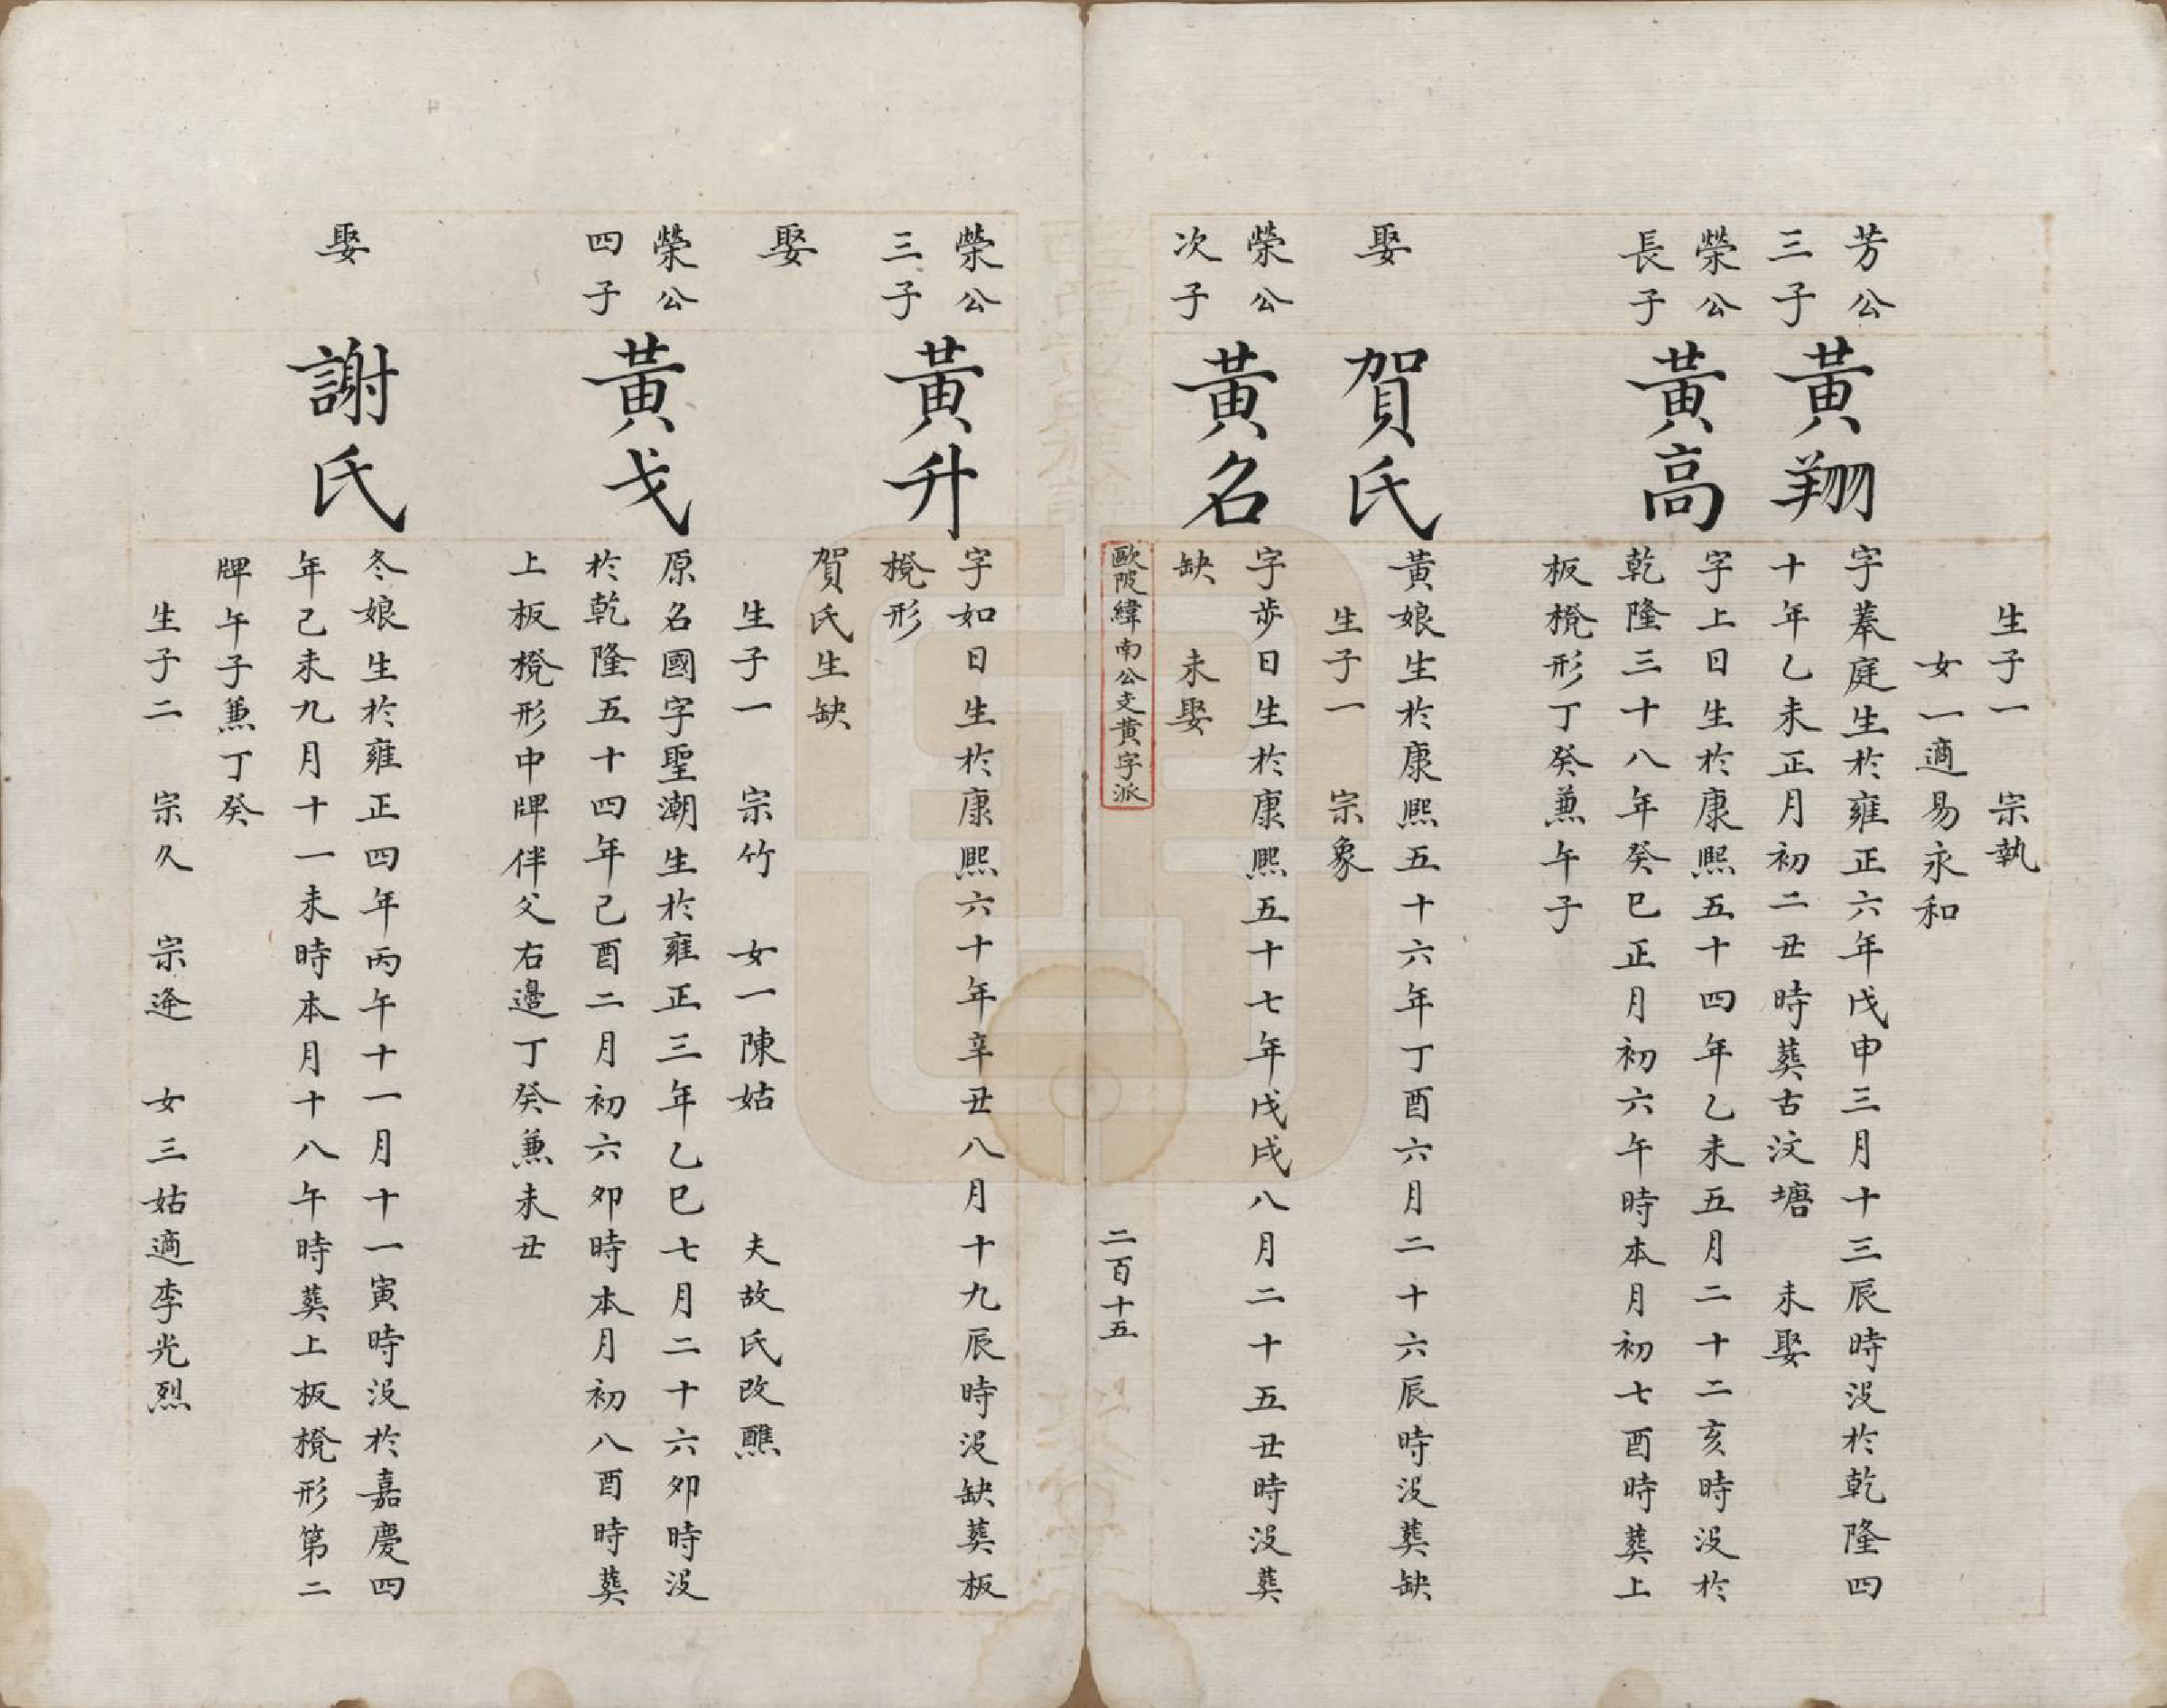 生子一　宗執
女一適易永和
芳公
三子
黃翔
字羣庭生於雍正六年戊申三月十三辰時沒於乾隆四
十年乙未正月初二丑時葬古汶塘　未娶
榮公
長子
黃高
字上日生於康熙五十四年乙未五月二十二亥時沒於
乾隆三十八年癸巳正月初六午時本月初七酉時葬上
板櫈形丁癸兼午子
娶
賀氏
黃娘生於康熙五十六年丁酉六月二十六辰時沒葬缺
生子一　宗象
榮公
次子
黃名
字步日生於康熙五十七年戊戌八月二十五丑時沒葬
缺　未娶
歐陂緯南公支黃字派
二百十五
榮公
三子
黃升
字如日生於康熙六十年辛丑八月十九辰時沒缺葬板
櫈形
娶
賀氏生缺
生子一　宗竹　女一陳姑　夫故氏改醮
榮公
四子
黃戈
原名國字聖潮生於雍正三年乙巳七月二十六卯時沒
於乾隆五十四年己酉二月初六卯時本月初八酉時葬
上板櫈形中牌伴父右邊丁癸兼未丑
娶
謝氏
冬娘生於雍正四年丙午十一月十一寅時沒於嘉慶四
年己未九月十一未時本月十八午時葬上板櫈形第二
牌午子兼丁癸
生子二　宗久　宗逄　女三姑適李光烈